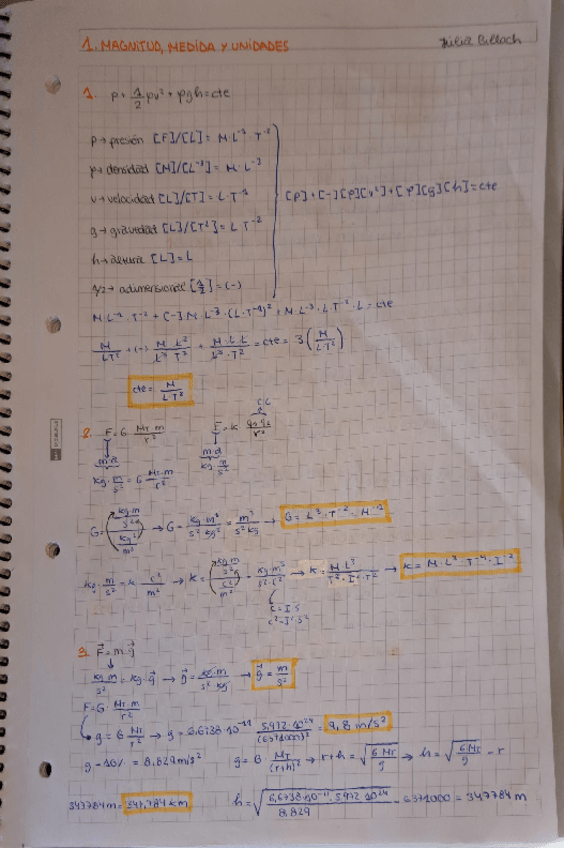 1. MAGNITUD, MEDIDA Y UNIDADES
1. p + 1/2 ρv² + ρgh = cte
p → presión [F]/[L] = M·L⁻¹·T⁻²
ρ → densidad [M]/[L⁻³] = M·L⁻³
v → velocidad [L]/[T] = L·T⁻¹
g → gravedad [L]/[T²] = L T⁻²
h → altura [L] = L
1/2 → adimensional [1/2] = (-)
[p] + [-][ρ][v²] + [ρ][g][h] = cte
M·L⁻¹·T⁻² + (-)·M·L⁻³·(L·T⁻¹)² + M·L⁻³·L T⁻²·L = cte
M/LT² + (-) M·L²/L³ T² + M·L·L/L³·T² = cte = 3 (M/L·T²)
cte = M/L·T²
2. F = G MT·m/r² F = k q₁q₂/r²
m·a m·a
kg·m/s² = G MT·m/r² kg m/s²
G = (kg m/s²)/(kg²/m²) → G = kg·m³/s²·kg² = m³/s² kg → G = L³·T⁻²·M⁻¹
kg·m/s² = k·c²/m² → k = → kg·m³/s²·c² → k = M·L³/T²·I²·T² → k = M·L³·T⁻⁴·I⁻²
c = I·s
c² = I²·s²
3. F = m·g
kg m/s² = kg·g → g = kg·m/s²·kg → g = m/s²
F = G·MT·m/r²
g = G MT/r² → g = 6,6738·10⁻¹¹ 5,972·10²⁴/(6371000)² = 9,8 m/s²
g - 10% = 8,829 m/s² g = G MT/(r+h)² → r+h = √(G MT/g) → h = √(G MT/g) - r
347784 m = 347,784 km h = √(6,6738·10⁻¹¹·5,972·10²⁴/8,829) - 6371000 = 347784 m